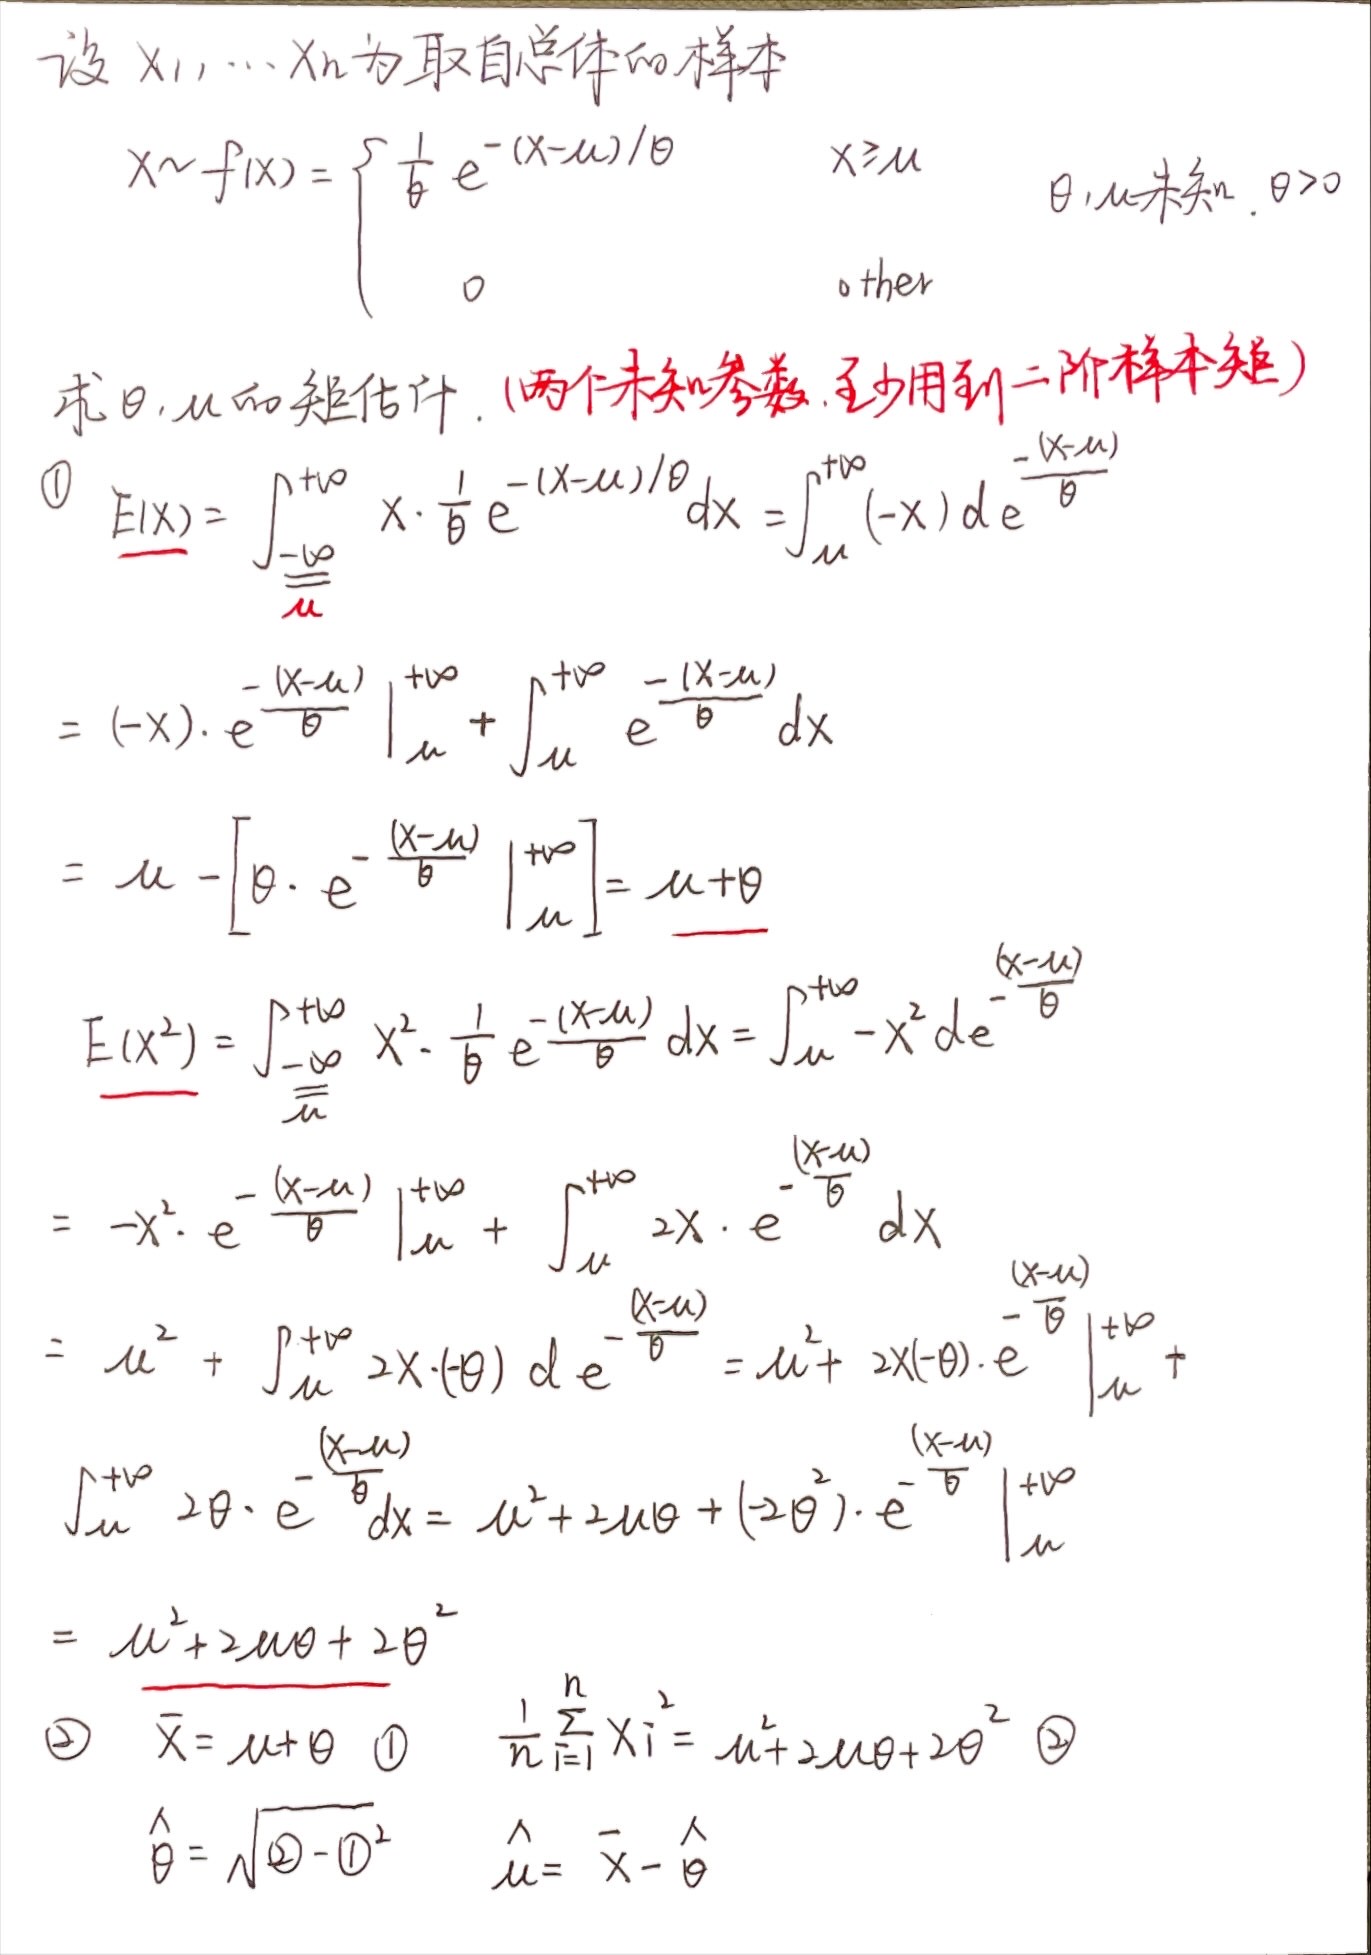 设 X1,, … Xn 为取自总体的样本
X ~ f(x) = { 1/θ e^{-(x-μ)/θ} x≥μ θ,μ未知. θ>0
0 other
求θ.μ的矩估计. (两个未知参数.至少用到二阶样本矩)
① E(X) = ∫_{-∞}^{+∞} x·1/θ e^{-(x-μ)/θ} dx = ∫_μ^{+∞} (-x) d e^{-(x-μ)/θ}
μ
= (-x)·e^{-(x-μ)/θ} |_μ^{+∞} + ∫_μ^{+∞} e^{-(x-μ)/θ} dx
= μ - [θ·e^{-(x-μ)/θ} |_μ^{+∞}] = μ+θ
E(X²) = ∫_{-∞}^{+∞} x²·1/θ e^{-(x-μ)/θ} dx = ∫_μ^{+∞} -x² d e^{-(x-μ)/θ}
μ
= -x²·e^{-(x-μ)/θ} |_μ^{+∞} + ∫_μ^{+∞} 2x·e^{-(x-μ)/θ} dx
= μ² + ∫_μ^{+∞} 2x·(-θ) d e^{-(x-μ)/θ} = μ² + 2x(-θ)·e^{-(x-μ)/θ} |_μ^{+∞} +
∫_μ^{+∞} 2θ·e^{-(x-μ)/θ} dx = μ²+2μθ+(-2θ²)·e^{-(x-μ)/θ} |_μ^{+∞}
= μ²+2μθ+2θ²
② X̄ = μ+θ ① 1/n Σ_{i=1}^{n} Xi² = μ²+2μθ+2θ² ②
θ̂ = √(②-①²) μ̂ = X̄ - θ̂